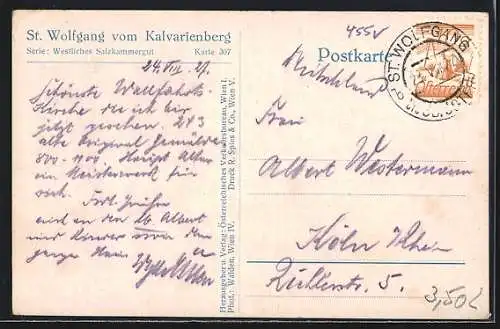 St. Wolfgang vom Kalvarienberg
Serie: Westliches Salzkammergut Karte 307
24. VIII. 27.
Schönste Wallfahrts-
Kirche die ich bis
jetzt gesehen. 243
alte Original Gemälde
800-1100 Haupt Altar
ein Meisterwerk für
sich.
Herzl. Grüßen
und an den lb. Albert
und
ganze Haus
Herausgeber u. Verlag: Österreichisches Verkehrsbureau, Wien I.
Phot.: Walden, Wien IV. Druck R. Spies & Co., Wien V.
455V
Postkarte
Deutschland
ST. WOLFGANG
Frau
Albert Westermann
Köln Rhein
5.
3,50